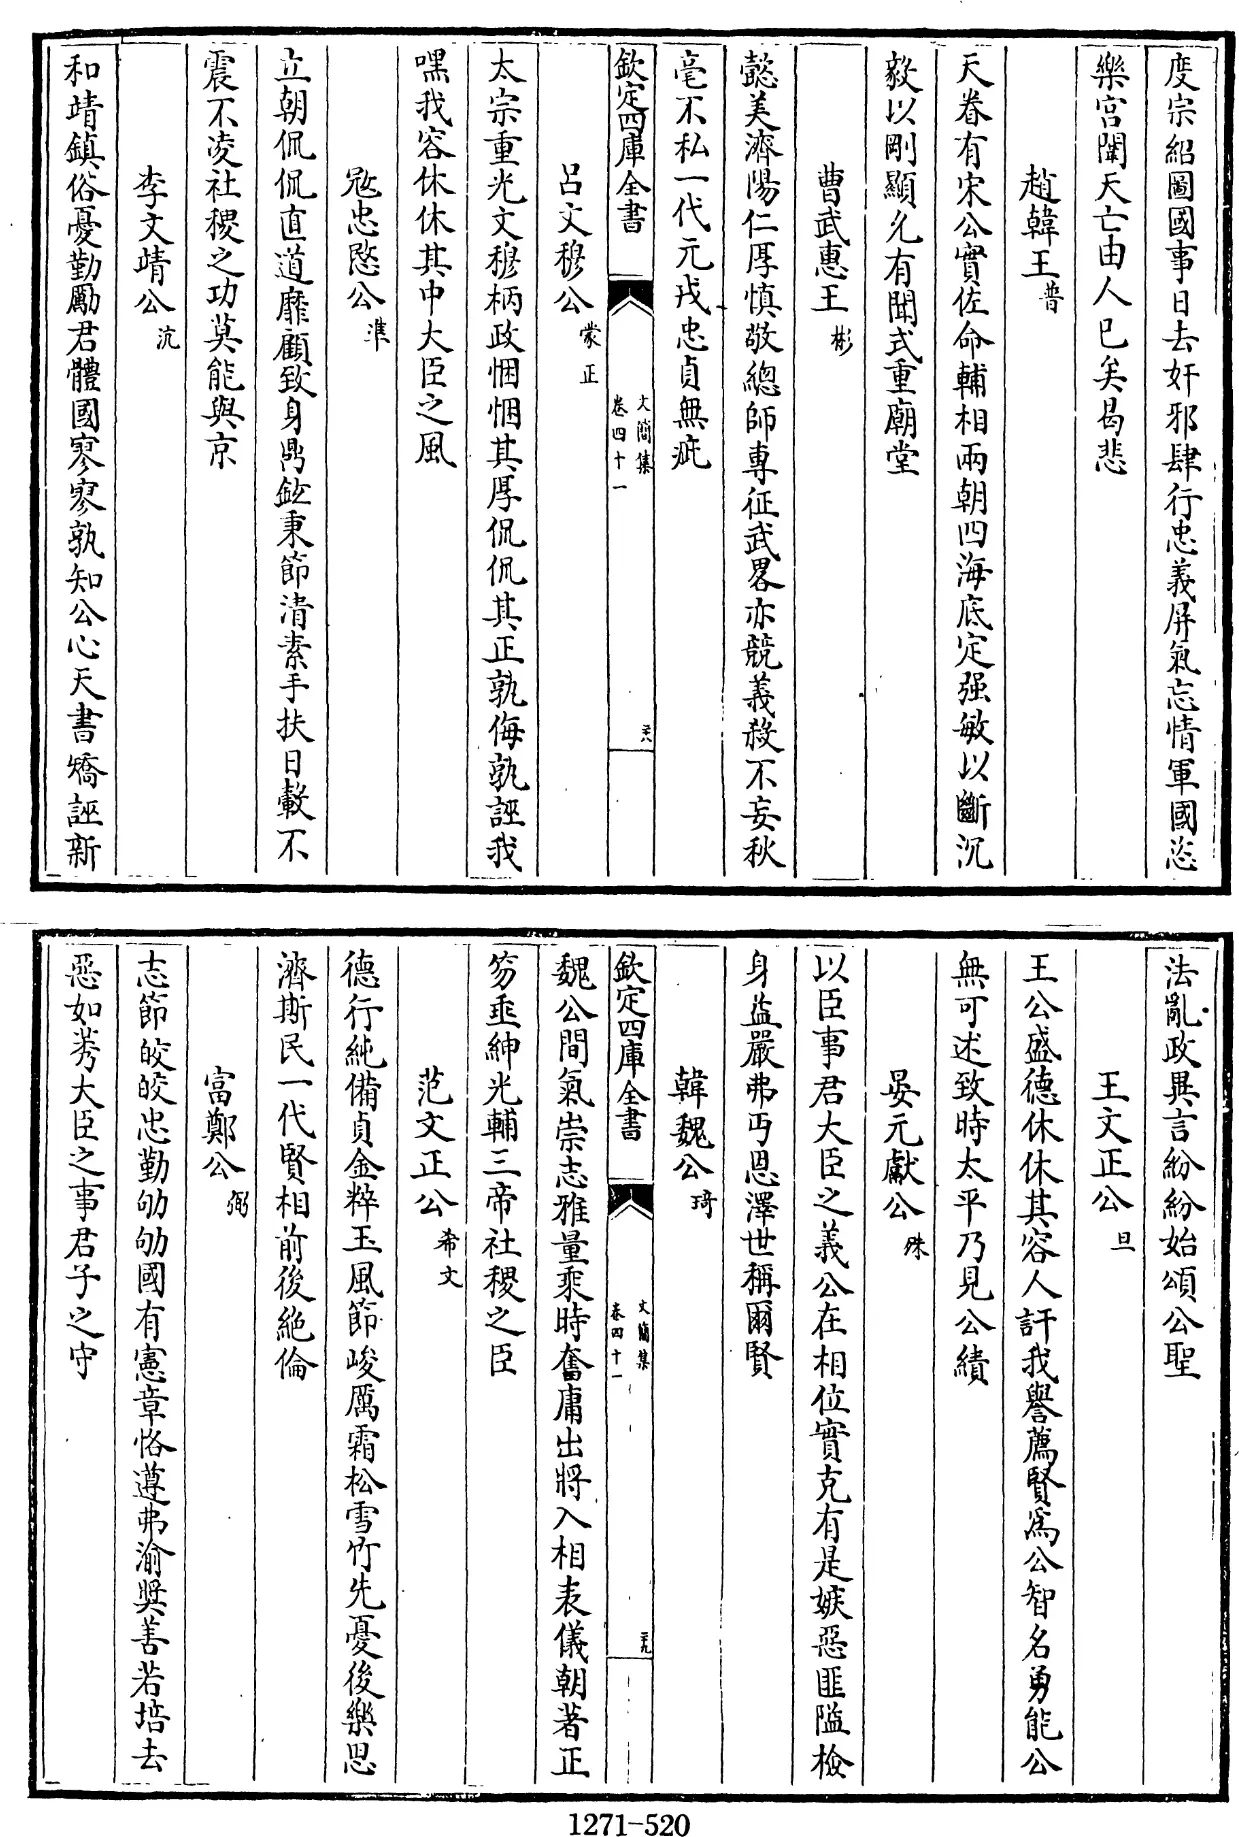 度宗紹圖國事日去奸邪肆行忠義屏氣忘情軍國恣
樂宮闈天亡由人已矣曷悲
趙韓王普
天眷有宋公實佐命輔相兩朝四海底定强敏以斷沉
毅以剛顯允有聞式重廟堂
曹武惠王彬
懿美濟陽仁厚慎敬總師專征武畧亦競義殺不妄秋
毫不私一代元戎忠貞無疵
欽定四庫全書
文簡集
卷四十一
二十八
呂文穆公蒙正
太宗重光文穆柄政悃悃其厚侃侃其正孰侮孰誣我
嘿我容休休其中大臣之風
冦忠愍公準
立朝侃侃直道靡顧致身鼎鉉秉節清素手扶日轂不
震不凌社稷之功莫能與京
李文靖公沆
和靖鎮俗憂勤勵君體國寥寥孰知公心天書矯誣新
法亂政異言紛紛始頌公聖
王文正公旦
王公盛德休休其容人訐我譽薦賢爲公智名勇能公
無可述致時太平乃見公績
晏元獻公殊
以臣事君大臣之義公在相位實克有是嫉惡匪隘檢
身益嚴弗丐恩澤世稱爾賢
韓魏公琦
欽定四庫全書
文簡集
卷四十一
二十九
魏公間氣崇志雅量乘時奮庸出將入相表儀朝著正
笏垂紳光輔三帝社稷之臣
范文正公希文
德行純備貞金粹玉風節峻厲霜松雪竹先憂後樂思
濟斯民一代賢相前後絶倫
富鄭公弼
志節皎皎忠勤劬劬國有憲章恪遵弗渝奬善若培去
惡如莠大臣之事君子之守
1271-520